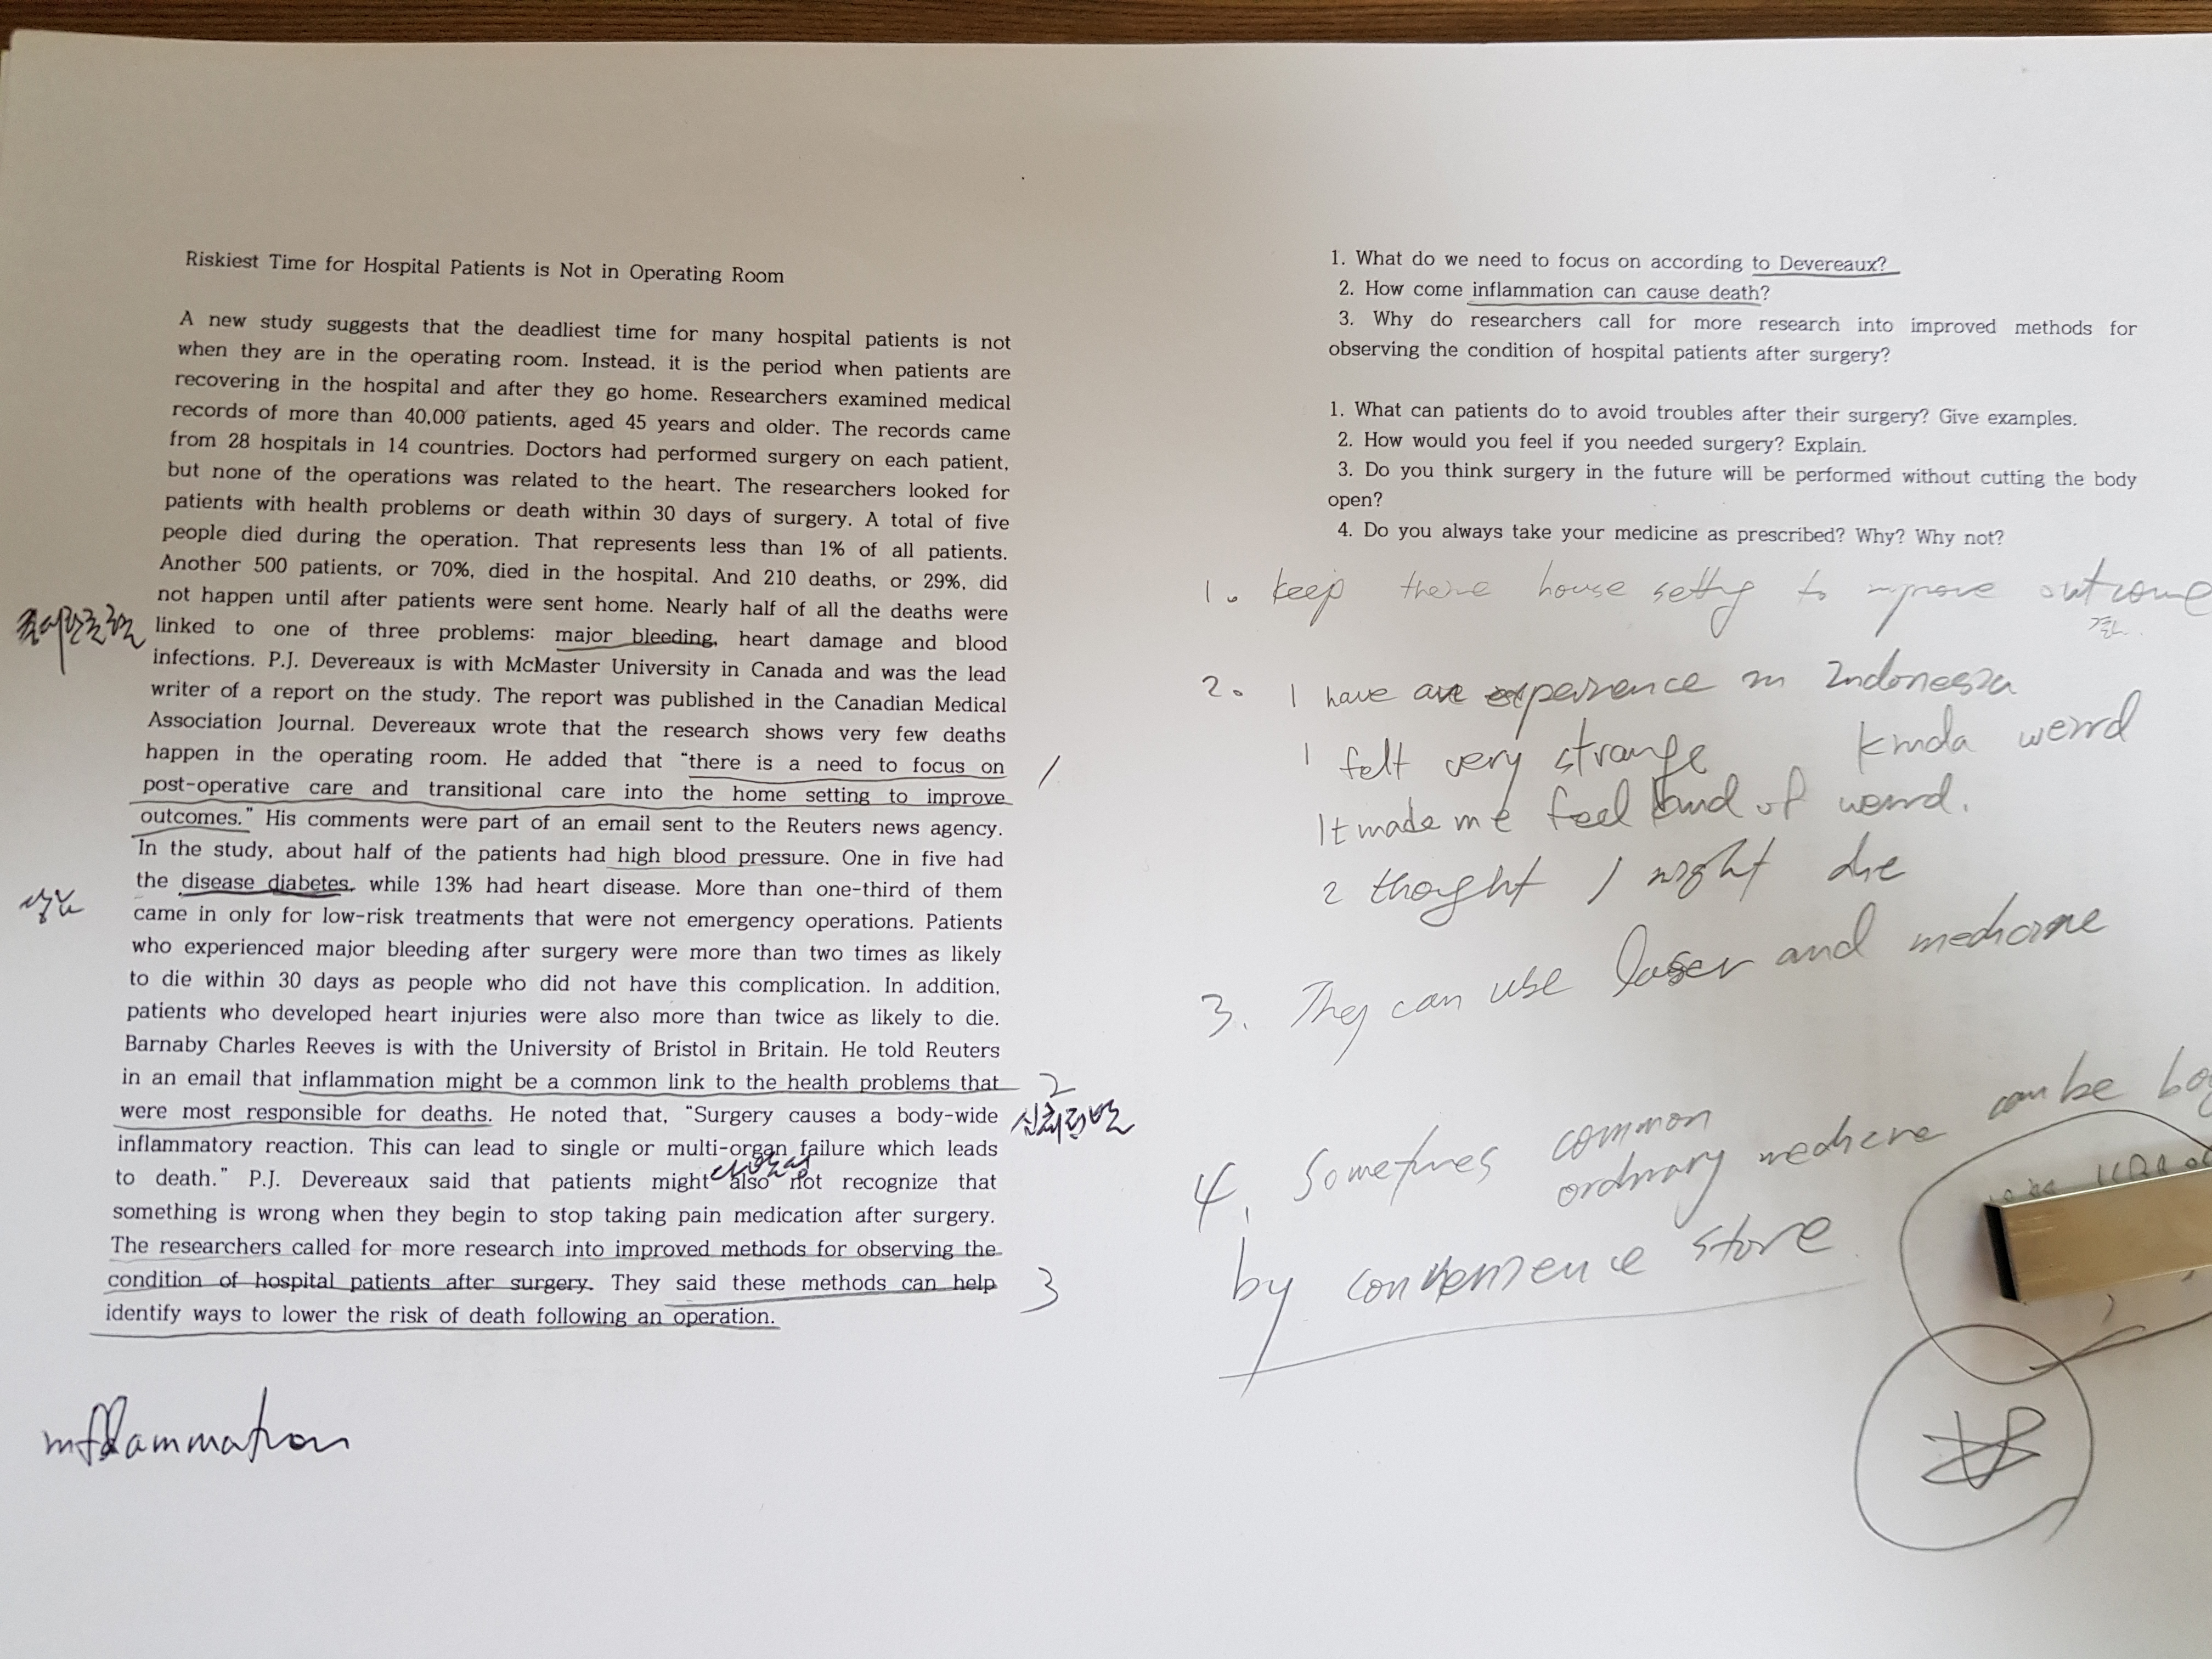 Riskiest Time for Hospital Patients is Not in Operating Room
A new study suggests that the deadliest time for many hospital patients is not
when they are in the operating room. Instead, it is the period when patients are
recovering in the hospital and after they go home. Researchers examined medical
records of more than 40,000 patients, aged 45 years and older. The records came
from 28 hospitals in 14 countries. Doctors had performed surgery on each patient,
but none of the operations was related to the heart. The researchers looked for
patients with health problems or death within 30 days of surgery. A total of five
people died during the operation. That represents less than 1% of all patients.
Another 500 patients, or 70%, died in the hospital. And 210 deaths, or 29%, did
not happen until after patients were sent home. Nearly half of all the deaths were
linked to one of three problems: major bleeding, heart damage and blood
infections. P.J. Devereaux is with McMaster University in Canada and was the lead
writer of a report on the study. The report was published in the Canadian Medical
Association Journal. Devereaux wrote that the research shows very few deaths
happen in the operating room. He added that “there is a need to focus on
1
post-operative care and transitional care into the home setting to improve
outcomes.” His comments were part of an email sent to the Reuters news agency.
In the study, about half of the patients had high blood pressure. One in five had
the disease diabetes, while 13% had heart disease. More than one-third of them
came in only for low-risk treatments that were not emergency operations. Patients
who experienced major bleeding after surgery were more than two times as likely
to die within 30 days as people who did not have this complication. In addition,
patients who developed heart injuries were also more than twice as likely to die.
Barnaby Charles Reeves is with the University of Bristol in Britain. He told Reuters
in an email that inflammation might be a common link to the health problems that
2
were most responsible for deaths. He noted that, “Surgery causes a body-wide
inflammatory reaction. This can lead to single or multi-organ failure which leads
to death.” P.J. Devereaux said that patients might also not recognize that
something is wrong when they begin to stop taking pain medication after surgery.
The researchers called for more research into improved methods for observing the
condition of hospital patients after surgery. They said these methods can help
3
identify ways to lower the risk of death following an operation.
inflammation
1. What do we need to focus on according to Devereaux?
2. How come inflammation can cause death?
3. Why do researchers call for more research into improved methods for
observing the condition of hospital patients after surgery?
1. What can patients do to avoid troubles after their surgery? Give examples.
2. How would you feel if you needed surgery? Explain.
3. Do you think surgery in the future will be performed without cutting the body
open?
4. Do you always take your medicine as prescribed? Why? Why not?
1. keep house setting to improve outcome
2. I have an experience in Indonesia
I felt very strange kinda weird
It made me feel kind of weird.
I thought I might die
3. They can use laser and medicine
4. Sometimes common
ordinary medicine can be
by convenience store